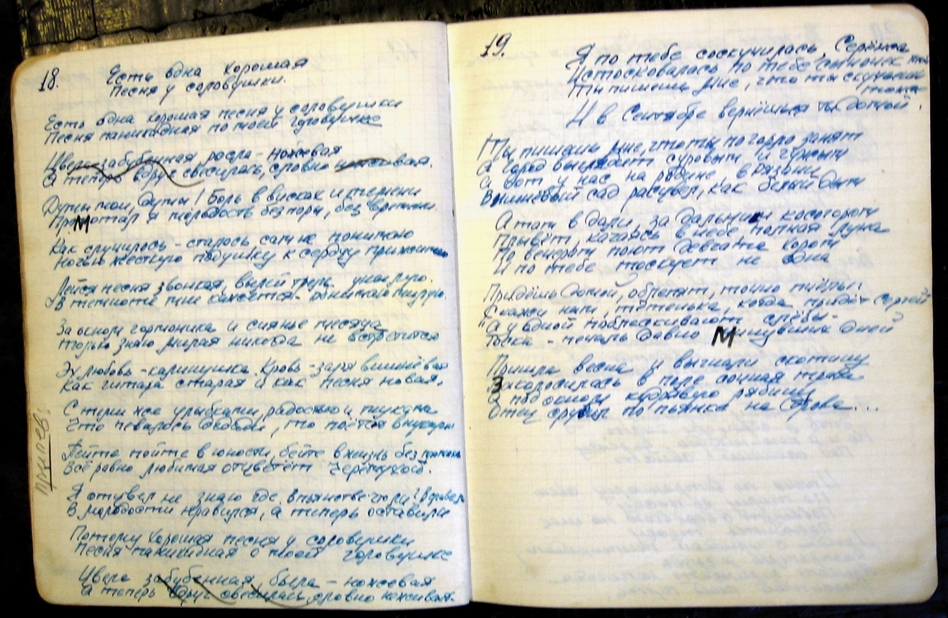 18.
Есть одна хорошая
Песня у соловушки.
Есть одна хорошая песня у соловушки
Песня панихидная по моей головушке
Цвела забубенная, росла - ножевая
А теперь вдруг свесилась, словно неживая.
Думы мои, думы! Боль в висках и темени
Промотал я молодость без поры, без времени.
Как случилось - сталось сам не понимаю
Ночью жесткую подушку к сердцу прижимаю
Лейся песня звонкая, вылей трель унылую.
В темноте мне кажется - обнимаю милую.
За окном гармоника и сиянье месяца
Только знаю милая никогда не встретится
Эх любовь-калинушка. Кровь - заря вишнёвая
Как гитара старая и как песня новая.
С теми же улыбками, радостью и муками
Что певалось дедами, то поётся внуками
Припев:
Пейте пойте в юности, бейте в жизнь без промаха
Всё равно любимая отцветёт черёмухой.
Я отцвел не знаю где, в пьянстве что ли? В славе ли
В молодости нравился, а теперь оставили
Потому хорошая песня у соловушки
Песня панихидная о моей головушке
Цвела забубенная, была - ножевая
А теперь вдруг свесилась, словно неживая.
19.
Я по тебе соскучилась, Серёжа
Истосковалась по тебе сыночек мой
Ты пишешь мне, что ты скучаешь тоже
И в Сентябре вернёшься ты домой.
Ты пишешь мне, что ты по горло занят
А город выглядит суровым и
А вот у нас на родине, в Рязани
Вишнёвый сад расцвел, как белый дым
А там в дали, за дальним косогором
Плывёт, качаясь в небе полная луна
По вечерам поют девчата хором
И по тебе тоскует не одна
Придёшь домой, облепят, точно пчёлы:
"Скажи нам, тётенька, когда придёт Сергей"
А у одной поблескивают слёзы-
- печаль давно минувших дней
Пришла весна и выгнали скотину
Заколосилась в поле сочная трава
А под окном кудрявую рябину
Отец срубил по пьянке на дрова...